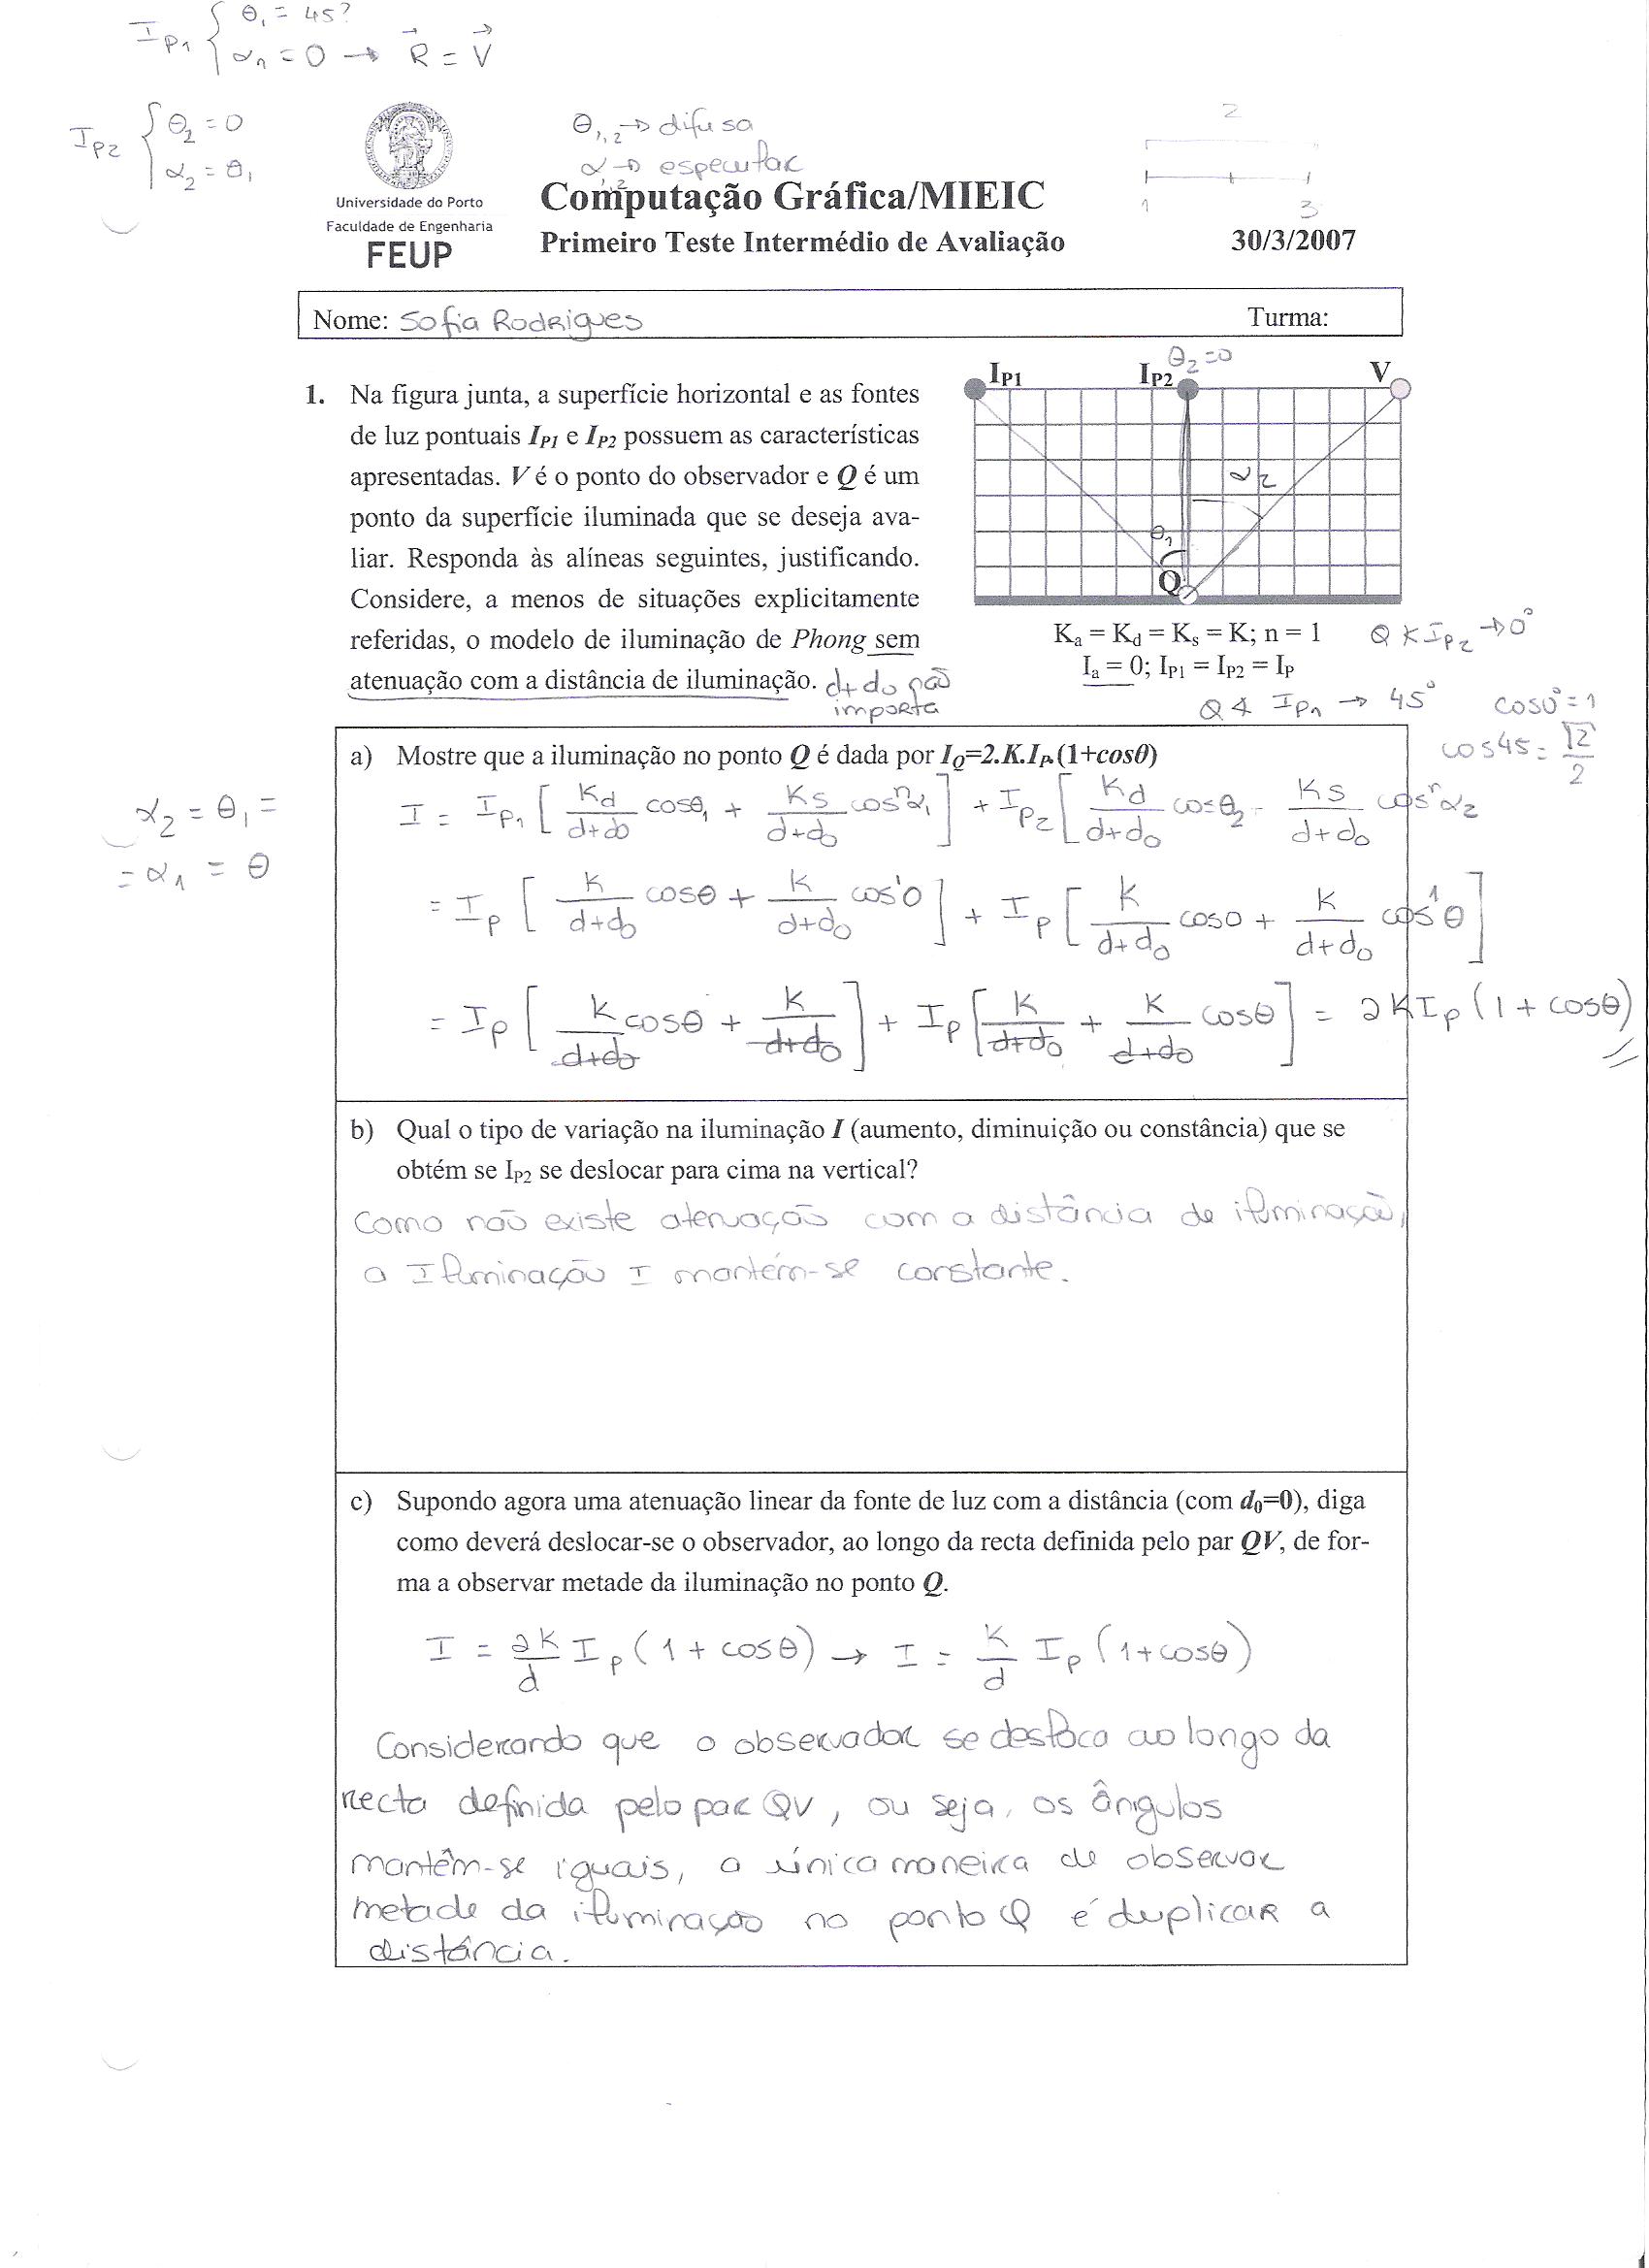 I P1 { θ1 = 45?
α1 = 0 → R⃗ = V⃗
I P2 { θ2 = 0
α2 = θ1
θ1,2 → difusa
α1,2 → especular
2
1 3
Universidade do Porto
Faculdade de Engenharia
FEUP
Computação Gráfica/MIEIC
Primeiro Teste Intermédio de Avaliação 30/3/2007
Nome: Sofia Rodrigues Turma:
1. Na figura junta, a superfície horizontal e as fontes
de luz pontuais IP1 e IP2 possuem as características
apresentadas. V é o ponto do observador e Q é um
ponto da superfície iluminada que se deseja ava-
liar. Responda às alíneas seguintes, justificando.
Considere, a menos de situações explicitamente
referidas, o modelo de iluminação de Phong sem
atenuação com a distância de iluminação. d+do não
importa
θ2=0
IP1 IP2 V
α2
θ1
Q
Ka = Kd = Ks = K; n = 1
Ia = 0; IP1 = IP2 = IP
Q ∢ IP2 → 0°
Q ∢ IP1 → 45°
cos0°=1
cos45 = √2/2
a) Mostre que a iluminação no ponto Q é dada por IQ=2.K.IP.(1+cosθ)
I = IP1 [ Kd/(d+d0) cosθ1 + Ks/(d+d0) cosⁿα1 ] + IP2 [ Kd/(d+d0) cosθ2 - Ks/(d+d0) cosⁿα2
α2 = θ1 =
= α1 = θ
= IP [ K/(d+d0) cosθ + K/(d+d0) cos¹0 ] + IP [ K/(d+d0) cos0 + K/(d+d0) cos¹θ ]
= IP [ K/(d+d0) cosθ + K/(d+d0) ] + IP [ K/(d+d0) + K/(d+d0) cosθ ] = 2KIP (1 + cosθ)
b) Qual o tipo de variação na iluminação I (aumento, diminuição ou constância) que se
obtém se IP2 se deslocar para cima na vertical?
Como não existe atenuação com a distância de iluminação,
a Iluminação I mantém-se constante.
c) Supondo agora uma atenuação linear da fonte de luz com a distância (com d0=0), diga
como deverá deslocar-se o observador, ao longo da recta definida pelo par QV, de for-
ma a observar metade da iluminação no ponto Q.
I = 2K/d IP (1 + cosθ) → I = K/d IP (1+cosθ)
Considerando que o observador se desloca ao longo da
recta definida pelo par QV, ou seja, os ângulos
mantêm-se iguais, a única maneira de observar
metade da iluminação no ponto Q é duplicar a
distância.